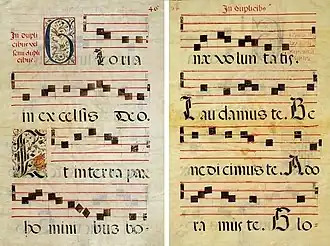 In dupli
cibus vel
semi dupli
cibus.
Gloria
in excelsis Deo.
Et in terra pax
hominibus bo
46
In duplicibus
næ volun tatis.
Laudamus te. Be
nedicimus te. Ado
ramus te. Glo